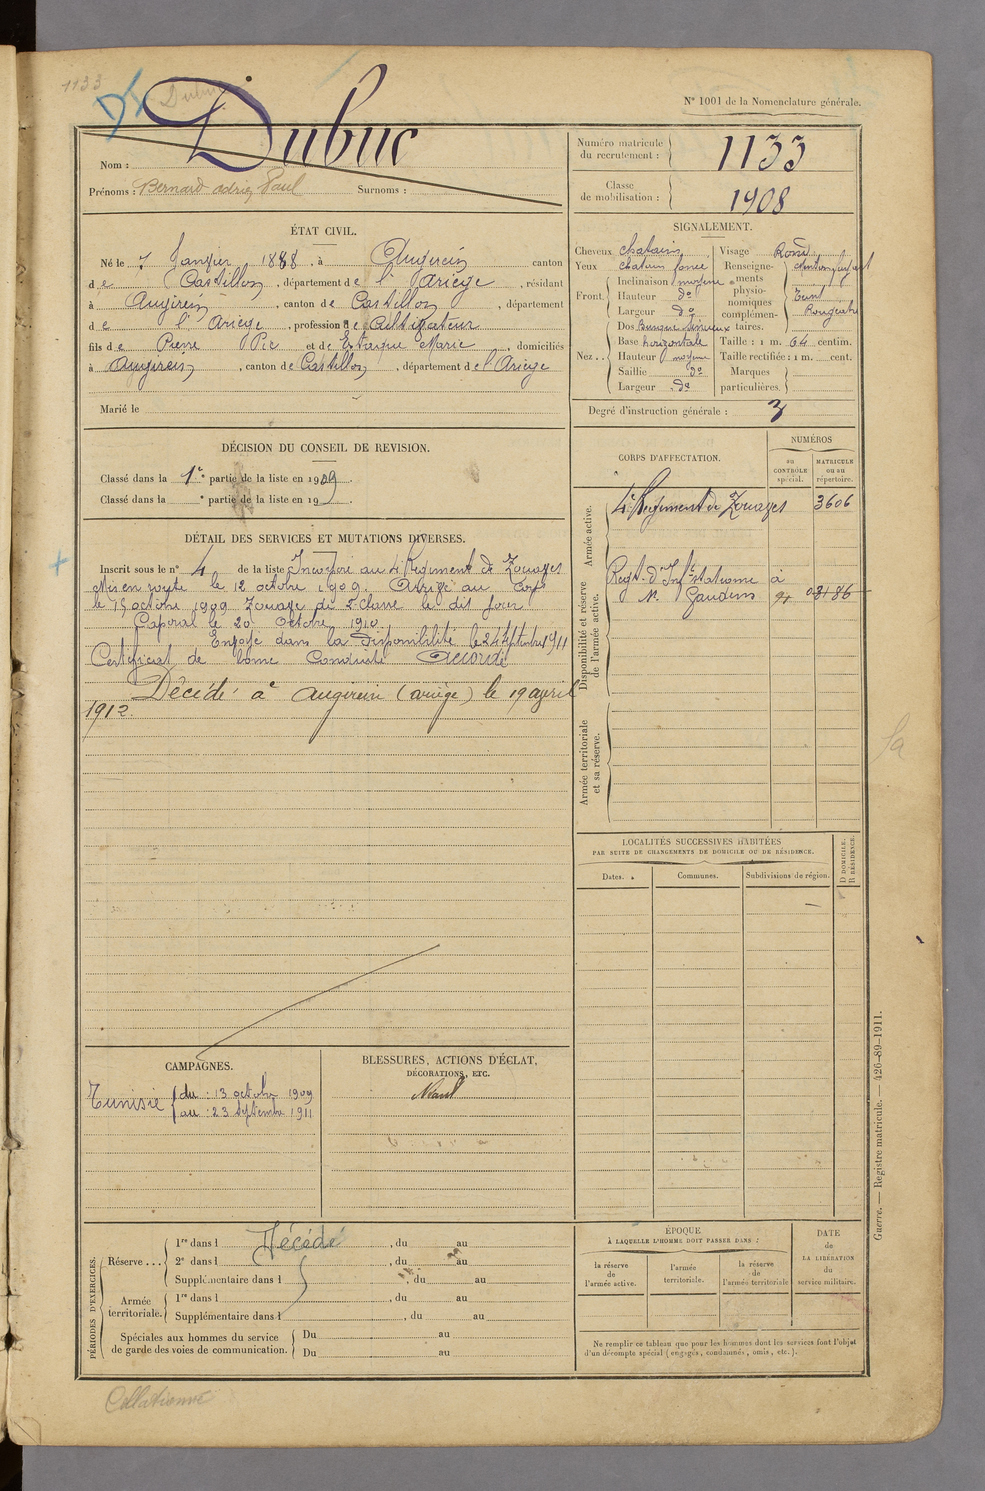 1133
Dubuc
N° 1001 de la Nomenclature générale.
Nom : Dubuc
Prénoms : Bernard adrien Paul Surnoms :
Numéro matricule du recrutement : 1133
Classe de mobilisation : 1908
ÉTAT CIVIL.
Né le 7 Janvier 1888, à Augirein canton
de Castillon, département de l'Ariège, résidant
à Augirein, canton de Castillon, département
de l'Ariège, profession de Cultivateur
fils de Pierre Pie et de Estaque Marie, domiciliés
à Augirein, canton de Castillon, département de l'Ariège
Marié le
SIGNALEMENT.
Cheveux chatain
Yeux chatain foncé
Front Inclinaison moyenne
Hauteur do
Largeur do
Nez Dos sinueux
Base horizontale
Hauteur moyenne
Saillie do
Largeur do
Visage Rond
Renseignements physionomiques complémentaires.
Teint
Taille : 1 m. 64 centim.
Taille rectifiée : 1 m. cent.
Marques particulières.
Degré d'instruction générale : 3
DÉCISION DU CONSEIL DE REVISION.
Classé dans la 1e partie de la liste en 1909.
Classé dans la e partie de la liste en 19
CORPS D'AFFECTATION.
NUMÉROS
au CONTRÔLE spécial.
MATRICULE ou au répertoire.
Armée active.
4e Régiment de Zouaves 3606
Disponibilité et réserve de l'armée active.
Regt d'Infie stationné à
St Gaudens
Armée territoriale et sa réserve.
DÉTAIL DES SERVICES ET MUTATIONS DIVERSES.
Inscrit sous le n° 4 de la liste Incorporé au 4e Régiment de Zouaves
Mis en route le 12 octobre 1909. Arrivé au Corps
le 13 octobre 1909 Zouave de 2e classe le dit jour
Caporal le 20 Octobre 1910
Envoyé dans la disponibilité le 24 Septembre 1911
Certificat de bonne Conduite Accordé
Décédé à Augirein (ariège) le 19 avril
1912.
LOCALITÉS SUCCESSIVES HABITÉES
PAR SUITE DE CHANGEMENTS DE DOMICILE OU DE RÉSIDENCE.
Dates. Communes. Subdivisions de région. D DOMICILE. R RÉSIDENCE.
CAMPAGNES.
Tunisie du : 13 octobre 1909
au : 23 Septembre 1911
BLESSURES, ACTIONS D'ÉCLAT,
DÉCORATIONS, ETC.
Néant
PÉRIODES D'EXERCICES.
Réserve ... 1re dans l Décédé, du au
2e dans l, du au
Supplémentaire dans l, du au
Armée territoriale. 1re dans l, du au
Supplémentaire dans l, du au
Spéciales aux hommes du service
de garde des voies de communication. Du au
Du au
ÉPOQUE
À LAQUELLE L'HOMME DOIT PASSER DANS :
la réserve de l'armée active.
l'armée territoriale.
la réserve de l'armée territoriale
DATE de LA LIBÉRATION du service militaire.
Ne remplir ce tableau que pour les hommes dont les services font l'objet
d'un décompte spécial (engagés, condamnés, omis, etc.).
Guerre. — Registre matricule. — 426-89-1911.
Collationné